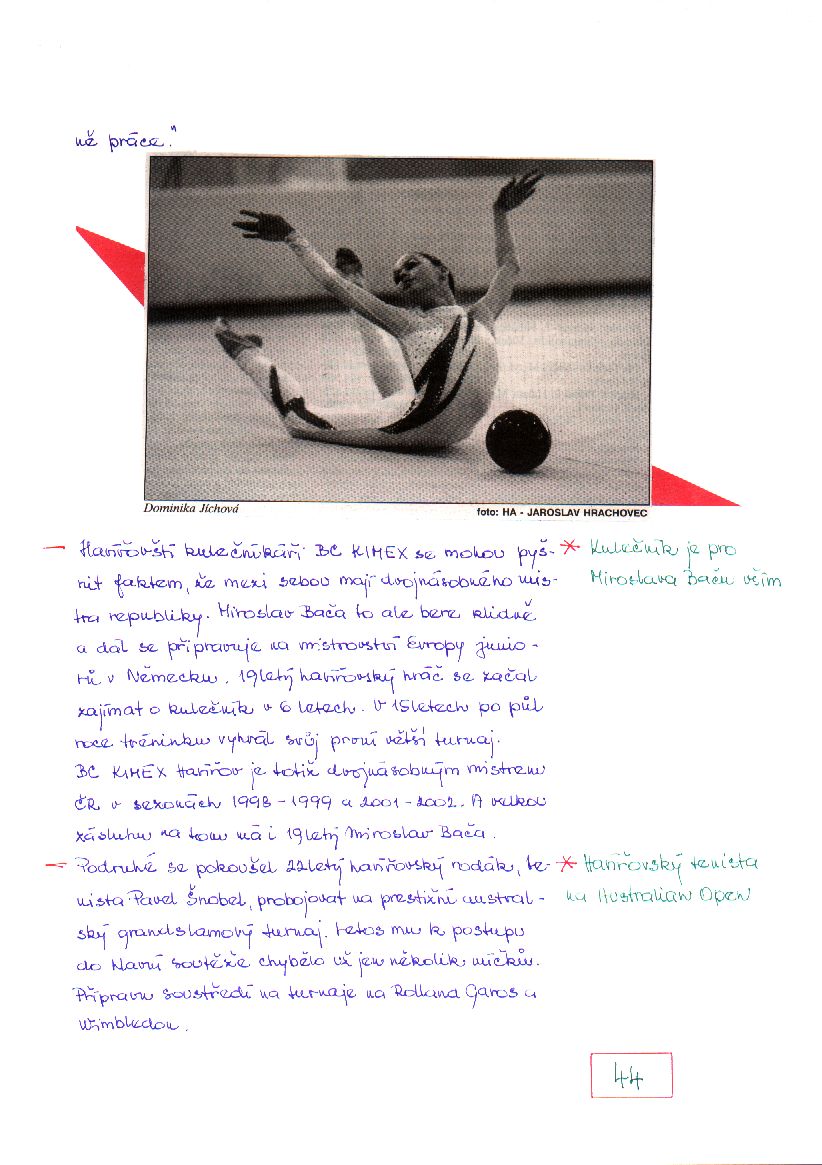 né práce."
Dominika Jíchová
foto: HA - JAROSLAV HRACHOVEC
— Havířovští kulečníkáři BC KIMEX se mohou pyš-
nit faktem, že mezi sebou mají dvojnásobného mis-
tra republiky. Miroslav Bača to ale bere klidně
a dál se připravuje na mistrovství Evropy junio-
rů v Německu. 19letý havířovský hráč se začal
zajímat o kulečník v 6 letech. V 15letech po půl
roce tréninku vyhrál svůj první větší turnaj.
BC KIMEX Havířov je totiž dvojnásobným mistrem
ČR v sezonách 1998 - 1999 a 2001 - 2002. A velkou
zásluhu na tom má i 19letý Miroslav Bača.
* Kulečník je pro
Miroslava Baču vším
— Podruhé se pokoušel 22letý havířovský rodák, te-
nista Pavel Šnobel, probojovat na prestižní austral-
ský grandslamový turnaj. Letos mu k postupu
do hlavní soutěže chybělo už jen několik míčků.
Přípravu soustředí na turnaje na Rolland Garos a
Wimbledon.
* Havířovský tenista
na Australian Open
44